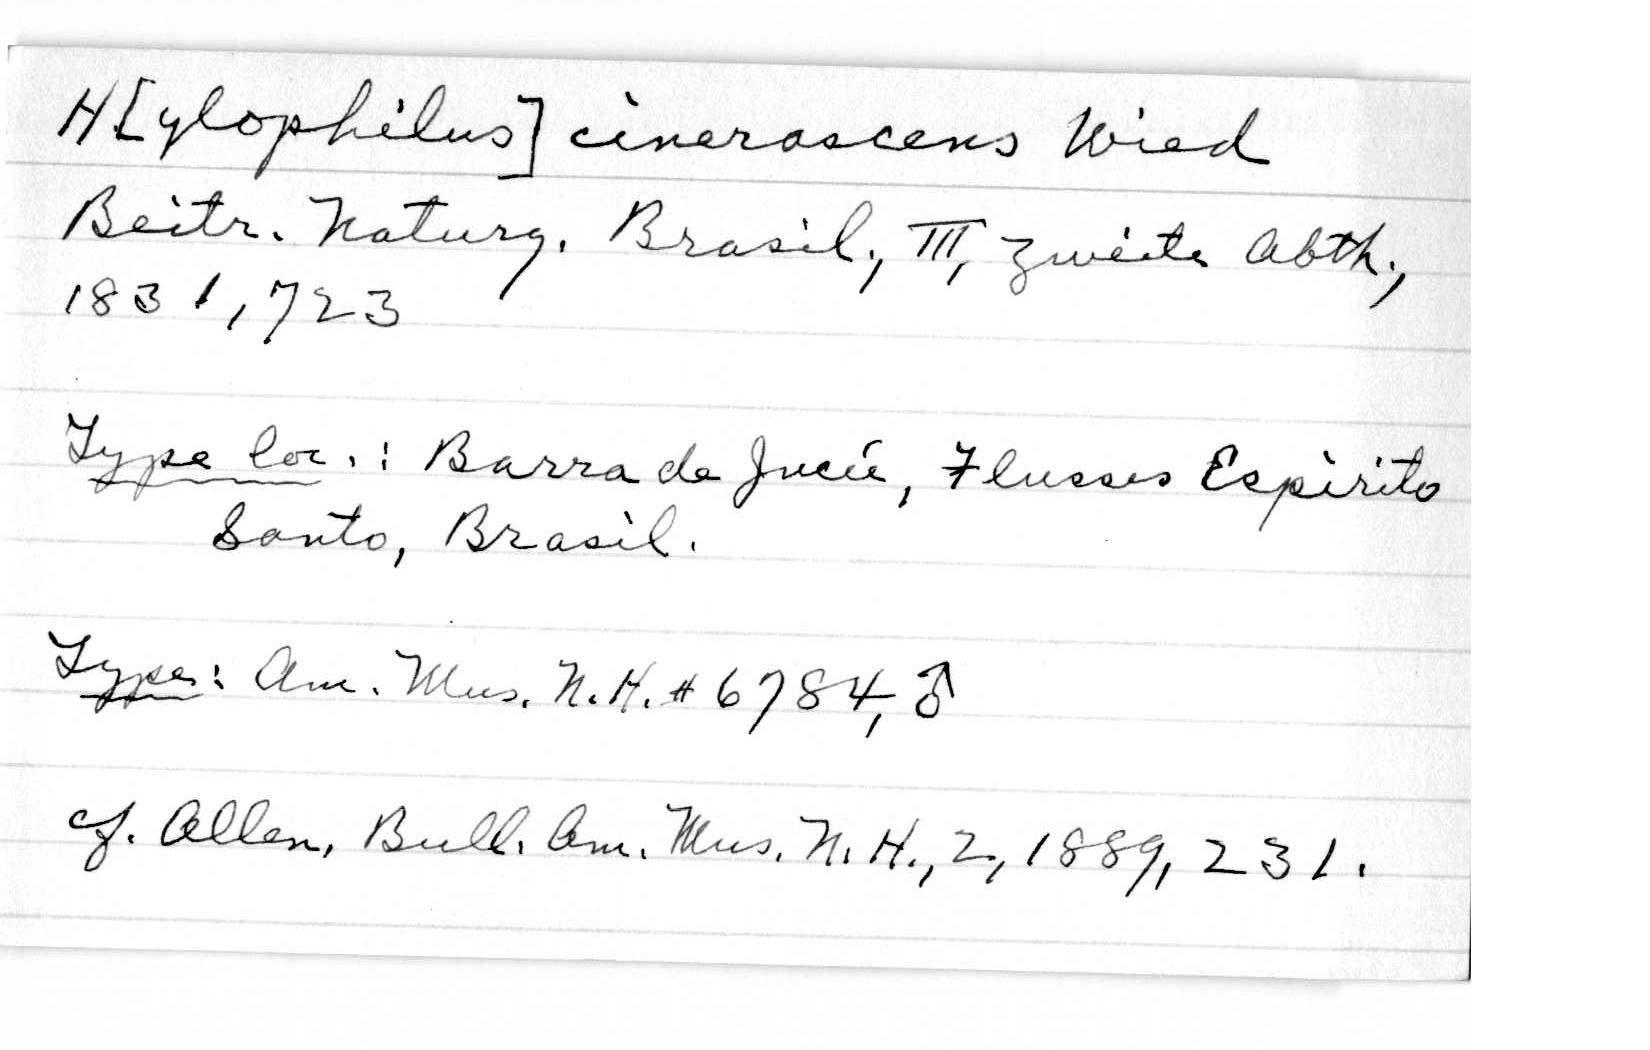 H[ylophilus] cinerascens Wied
Beitr. Naturg. Brasil., III, Zweite Abth.,
1831, 723
Type loc.: Barra de Jucú, Flusses Espirito
Santo, Brasil.
Type: Am. Mus. N.H. #6784, ♂
cf. Allen, Bull. Am. Mus. N.H., 2, 1889, 231.